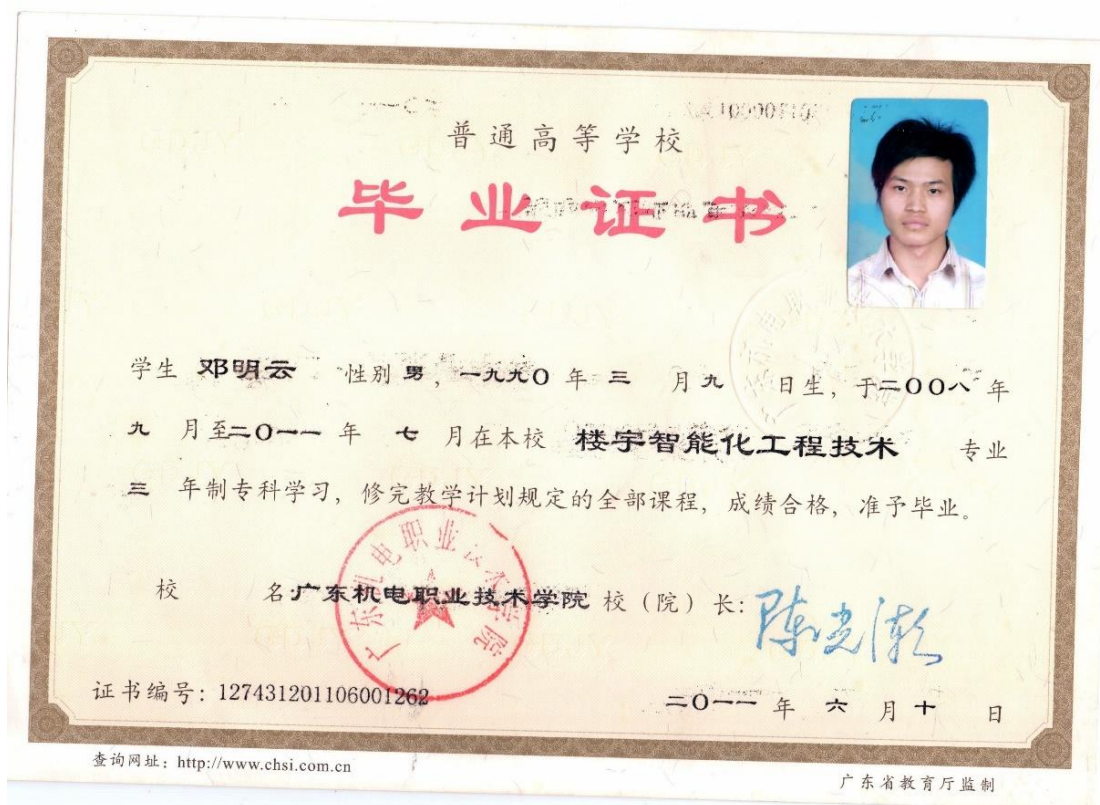 普通高等学校
毕业证书
学生 邓明云 性别 男，一九九〇 年 三 月 九 日生，于二〇〇八 年
九 月至二〇一一 年 七 月在本校 楼宇智能化工程技术 专业
三 年制专科学习，修完教学计划规定的全部课程，成绩合格，准予毕业。
校 名:广东机电职业技术学院 校（院）长:
广东机电职业技术学院
证书编号：127431201106001262
二〇一一 年 六 月 十 日
查询网址：http://www.chsi.com.cn
广东省教育厅监制